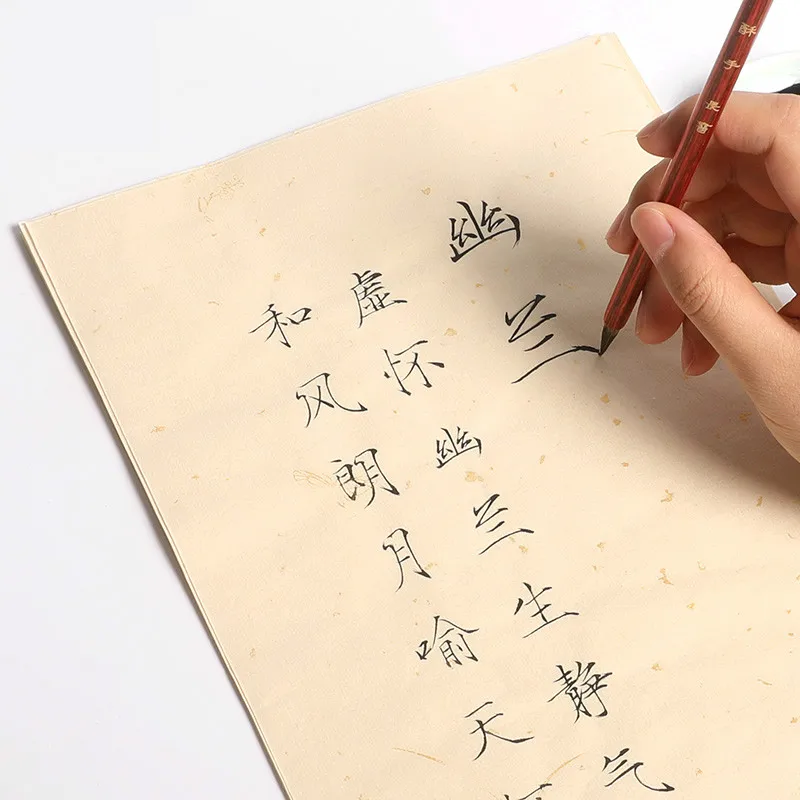 幽兰
虚怀幽兰生静气
和风朗月喻天
酥手